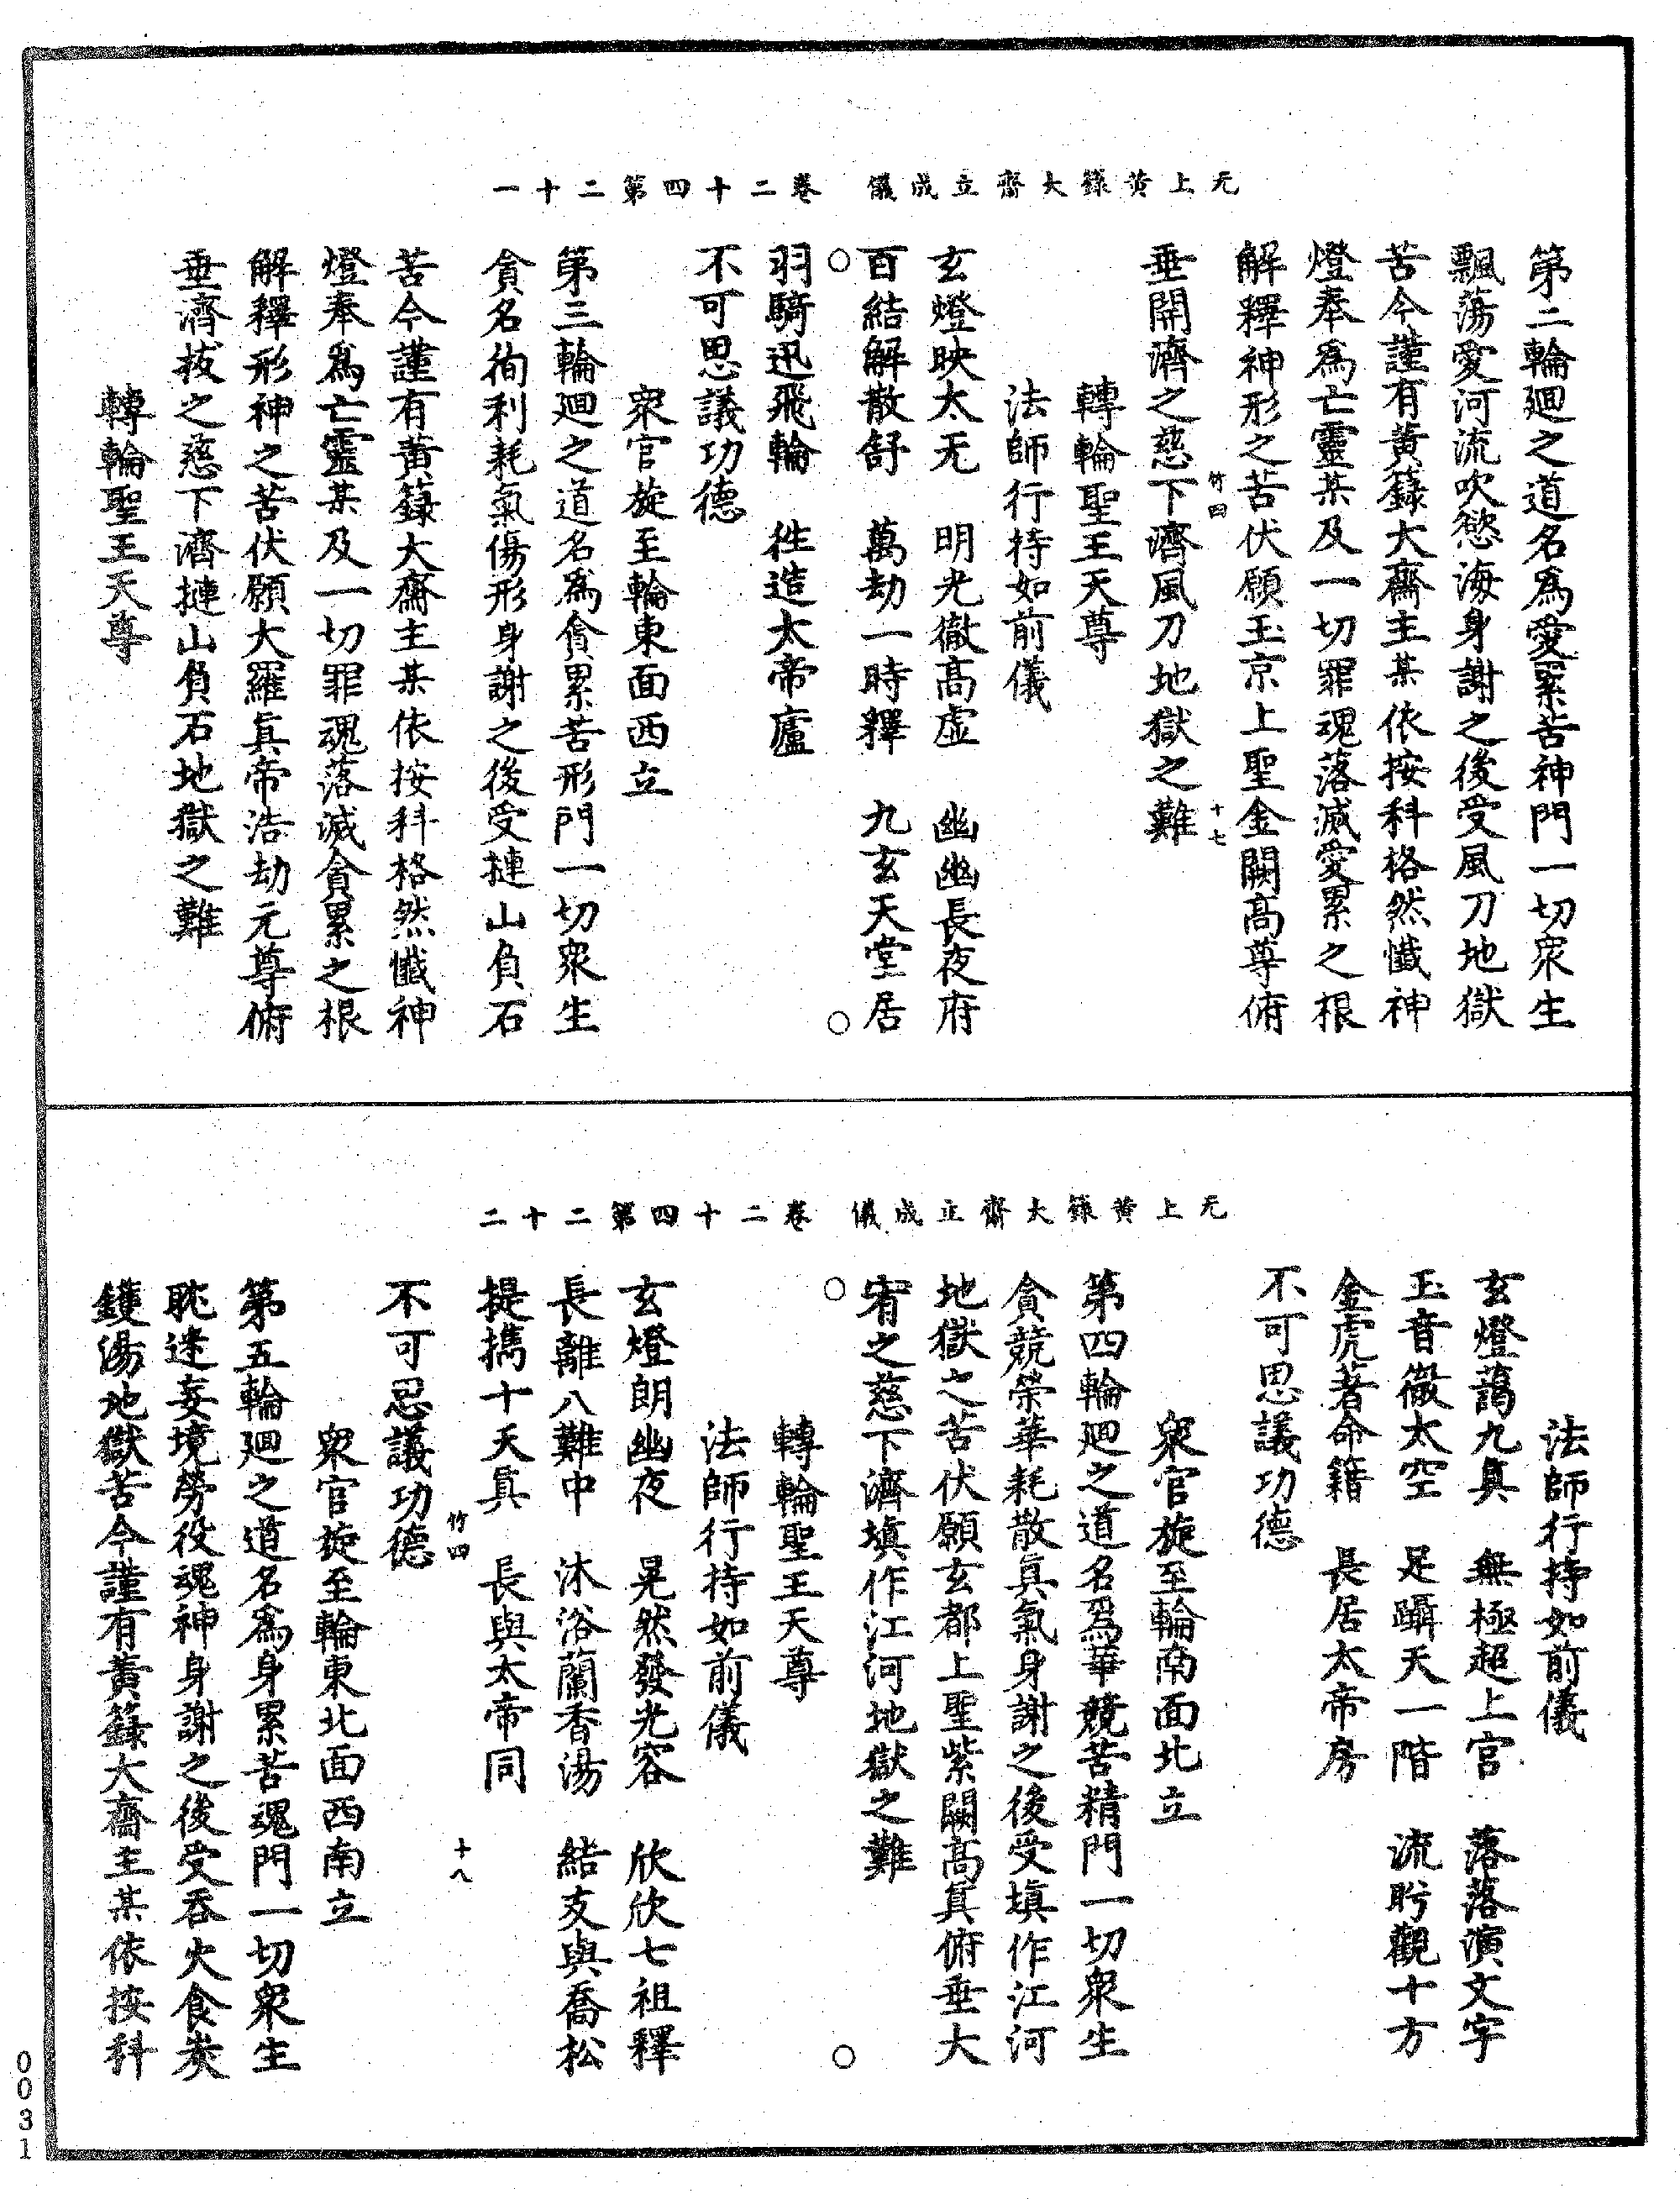 无上黄籙大齋立成儀　卷二十四第二十一
第二輪廻之道名爲愛累苦神門一切衆生
飄蕩愛河流吹慾海身謝之後受風刀地獄
苦今謹有黄籙大齋主某依按科格然懺神
燈奉爲亡靈某及一切罪魂落滅愛累之根
解釋神形之苦伏願玉京上聖金闕髙尊俯
竹四　十七
垂開濟之慈下濟風刀地獄之難
轉輪聖王天尊
法師行持如前儀
玄燈映太无　明光徹髙虛　幽幽長夜府
百結解散舒　萬劫一時釋　九玄天堂居
羽騎迅飛輪　徃造太帝廬
不可思議功德
衆官旋至輪東面西立
第三輪廻之道名爲貪累苦形門一切衆生
貪名徇利耗氣傷形身謝之後受摙山負石
苦今謹有黄籙大齋主某依按科格然懺神
燈奉爲亡靈某及一切罪魂落滅貪累之根
解釋形神之苦伏願大羅眞帝浩劫元尊俯
垂濟拔之慈下濟摙山負石地獄之難
轉輪聖王天尊
无上黄籙大齋立成儀　卷二十四第二十二
法師行持如前儀
玄燈藹九眞　無極超上宫　落落演文字
玉音徹太空　足躡天一階　流眄觀十方
金虎著命籍　長居太帝房
不可思議功德
衆官旋至輪南面北立
第四輪廻之道名爲華競苦精門一切衆生
貪競榮華耗散眞氣身謝之後受填作江河
地獄之苦伏願玄都上聖紫闕髙眞俯垂大
宥之慈下濟填作江河地獄之難
轉輪聖王天尊
法師行持如前儀
玄燈朗幽夜　晃然發光容　欣欣七祖釋
長離八難中　沐浴蘭香湯　結友與喬松
提擕十天眞　長與太帝同
竹四　十八
不可思議功德
衆官旋至輪東北面西南立
第五輪廻之道名爲身累苦魂門一切衆生
耽迷妄境勞役魂神身謝之後受吞火食炭
鑊湯地獄苦今謹有黄籙大齋主某依按科
0031